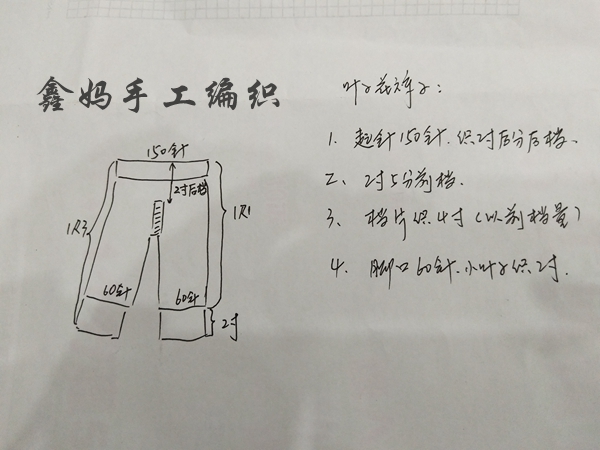 鑫妈手工编织
叶子花裤子：
1、起针150针.织2寸后分后档、
2、2寸5分前档.
3、档片织4寸（以前档量）
4、脚口60针.小叶子织2寸.
150针
2寸后档
1尺3
1尺1
60针
60针
2寸